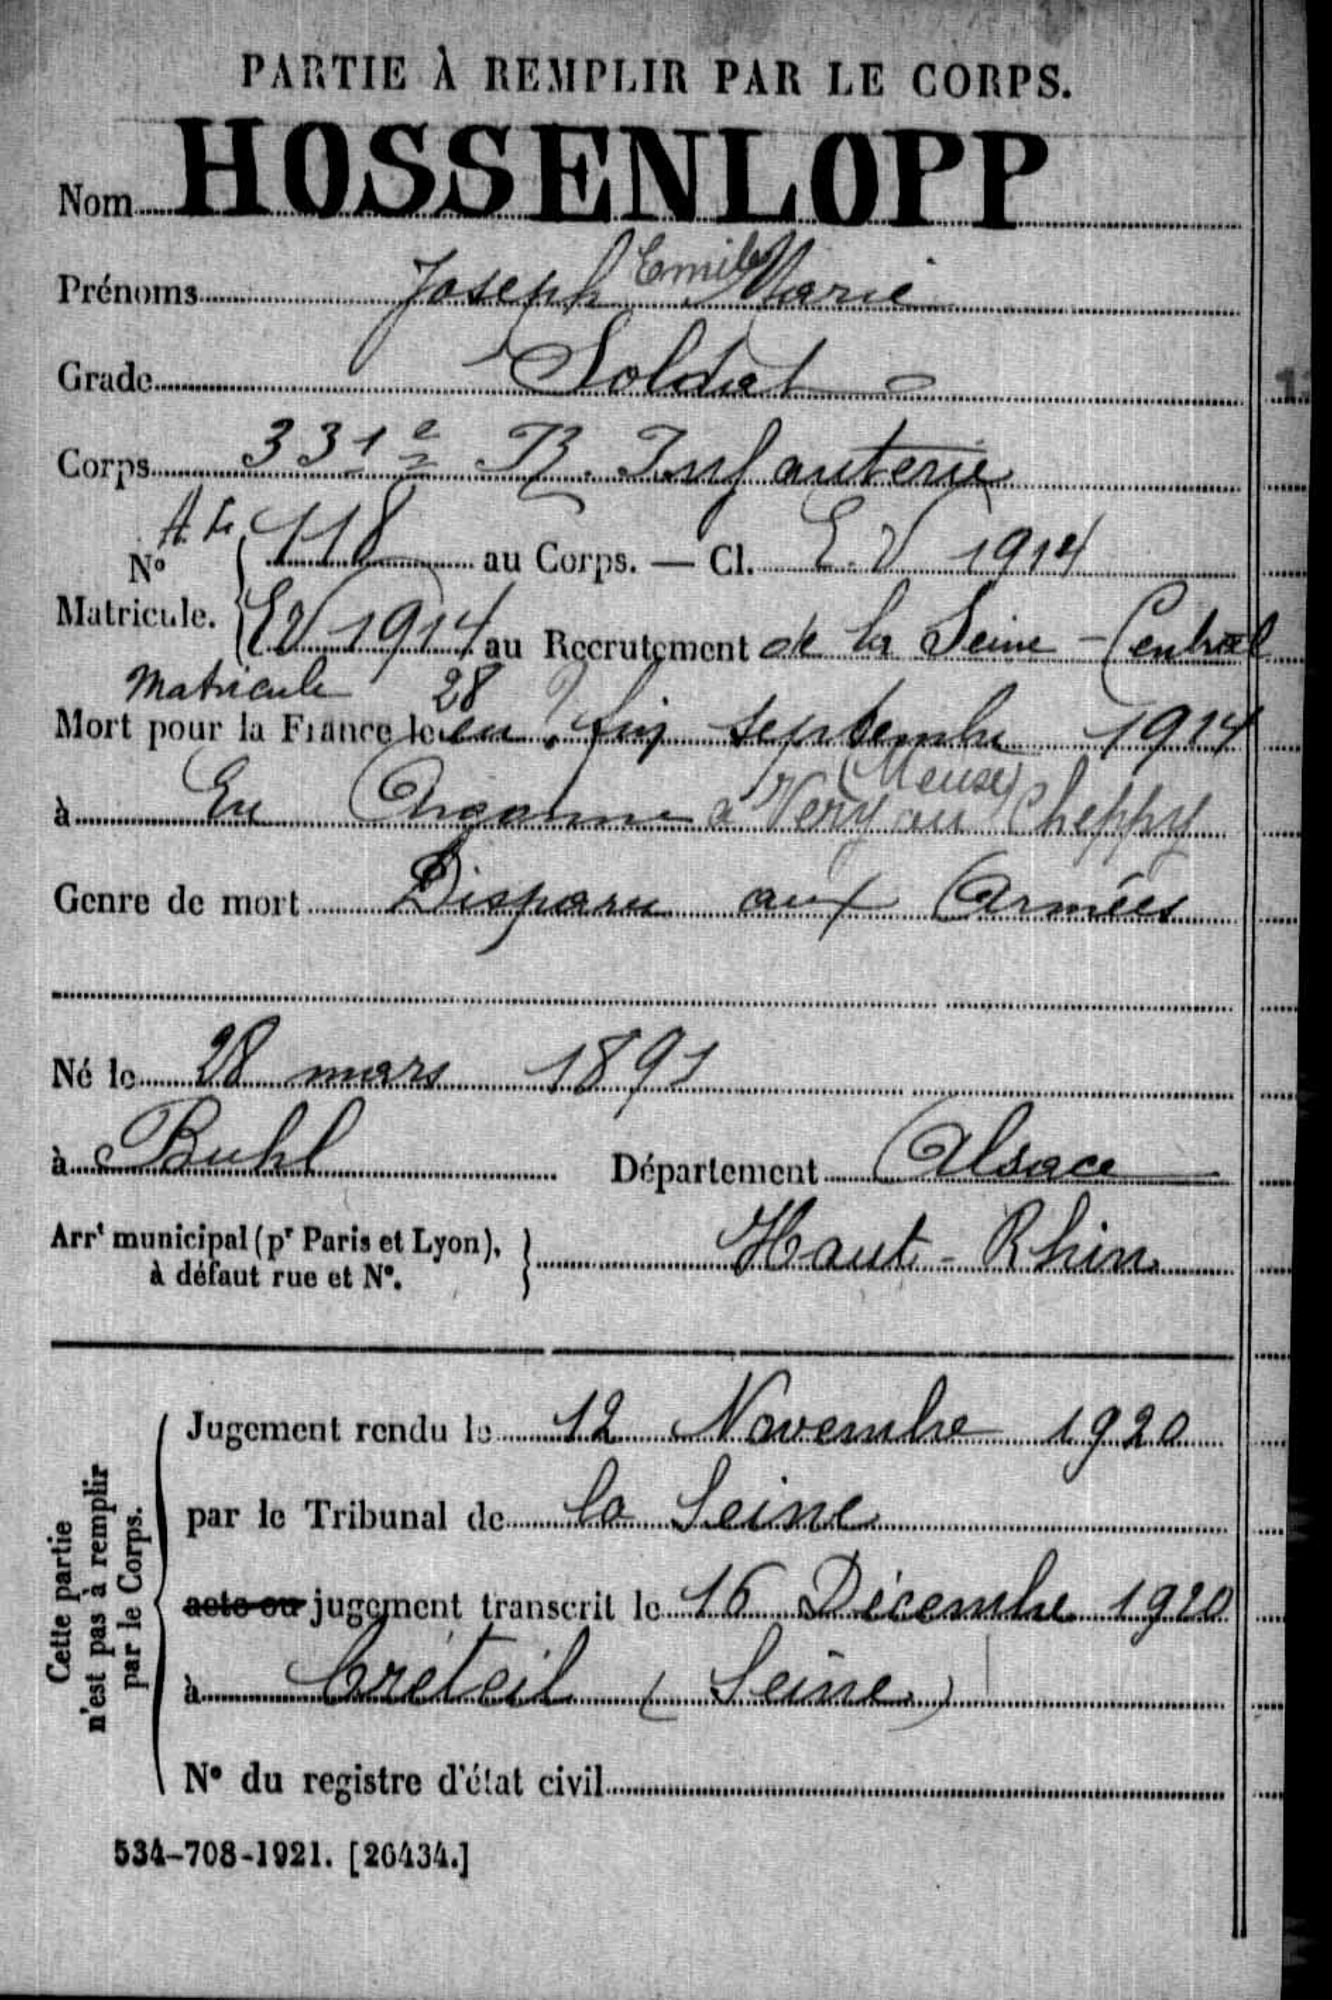 PARTIE À REMPLIR PAR LE CORPS.
Nom HOSSENLOPP
Prénoms Joseph Emile Marie
Grade Soldat
Corps 331e R. Infanterie
No Matricule. { 118 au Corps. — Cl. E.V 1914
EV 1914 au Recrutement de la Seine - Central
Matricule 28
Mort pour la France le en fin septembre 1914
à En Argonne à Véry ou Cheppy (Meuse)
Genre de mort Disparu aux Armées
Né le 28 mars 1891
à Buhl Département Alsace
Arrt municipal (pr Paris et Lyon), à défaut rue et No. } Haut-Rhin
Cette partie n'est pas à remplir par le Corps.
Jugement rendu le 12 Novembre 1920
par le Tribunal de la Seine
acte ou jugement transcrit le 16 Décembre 1920
à Créteil (Seine)
No du registre d'état civil
534-708-1921. [26434.]